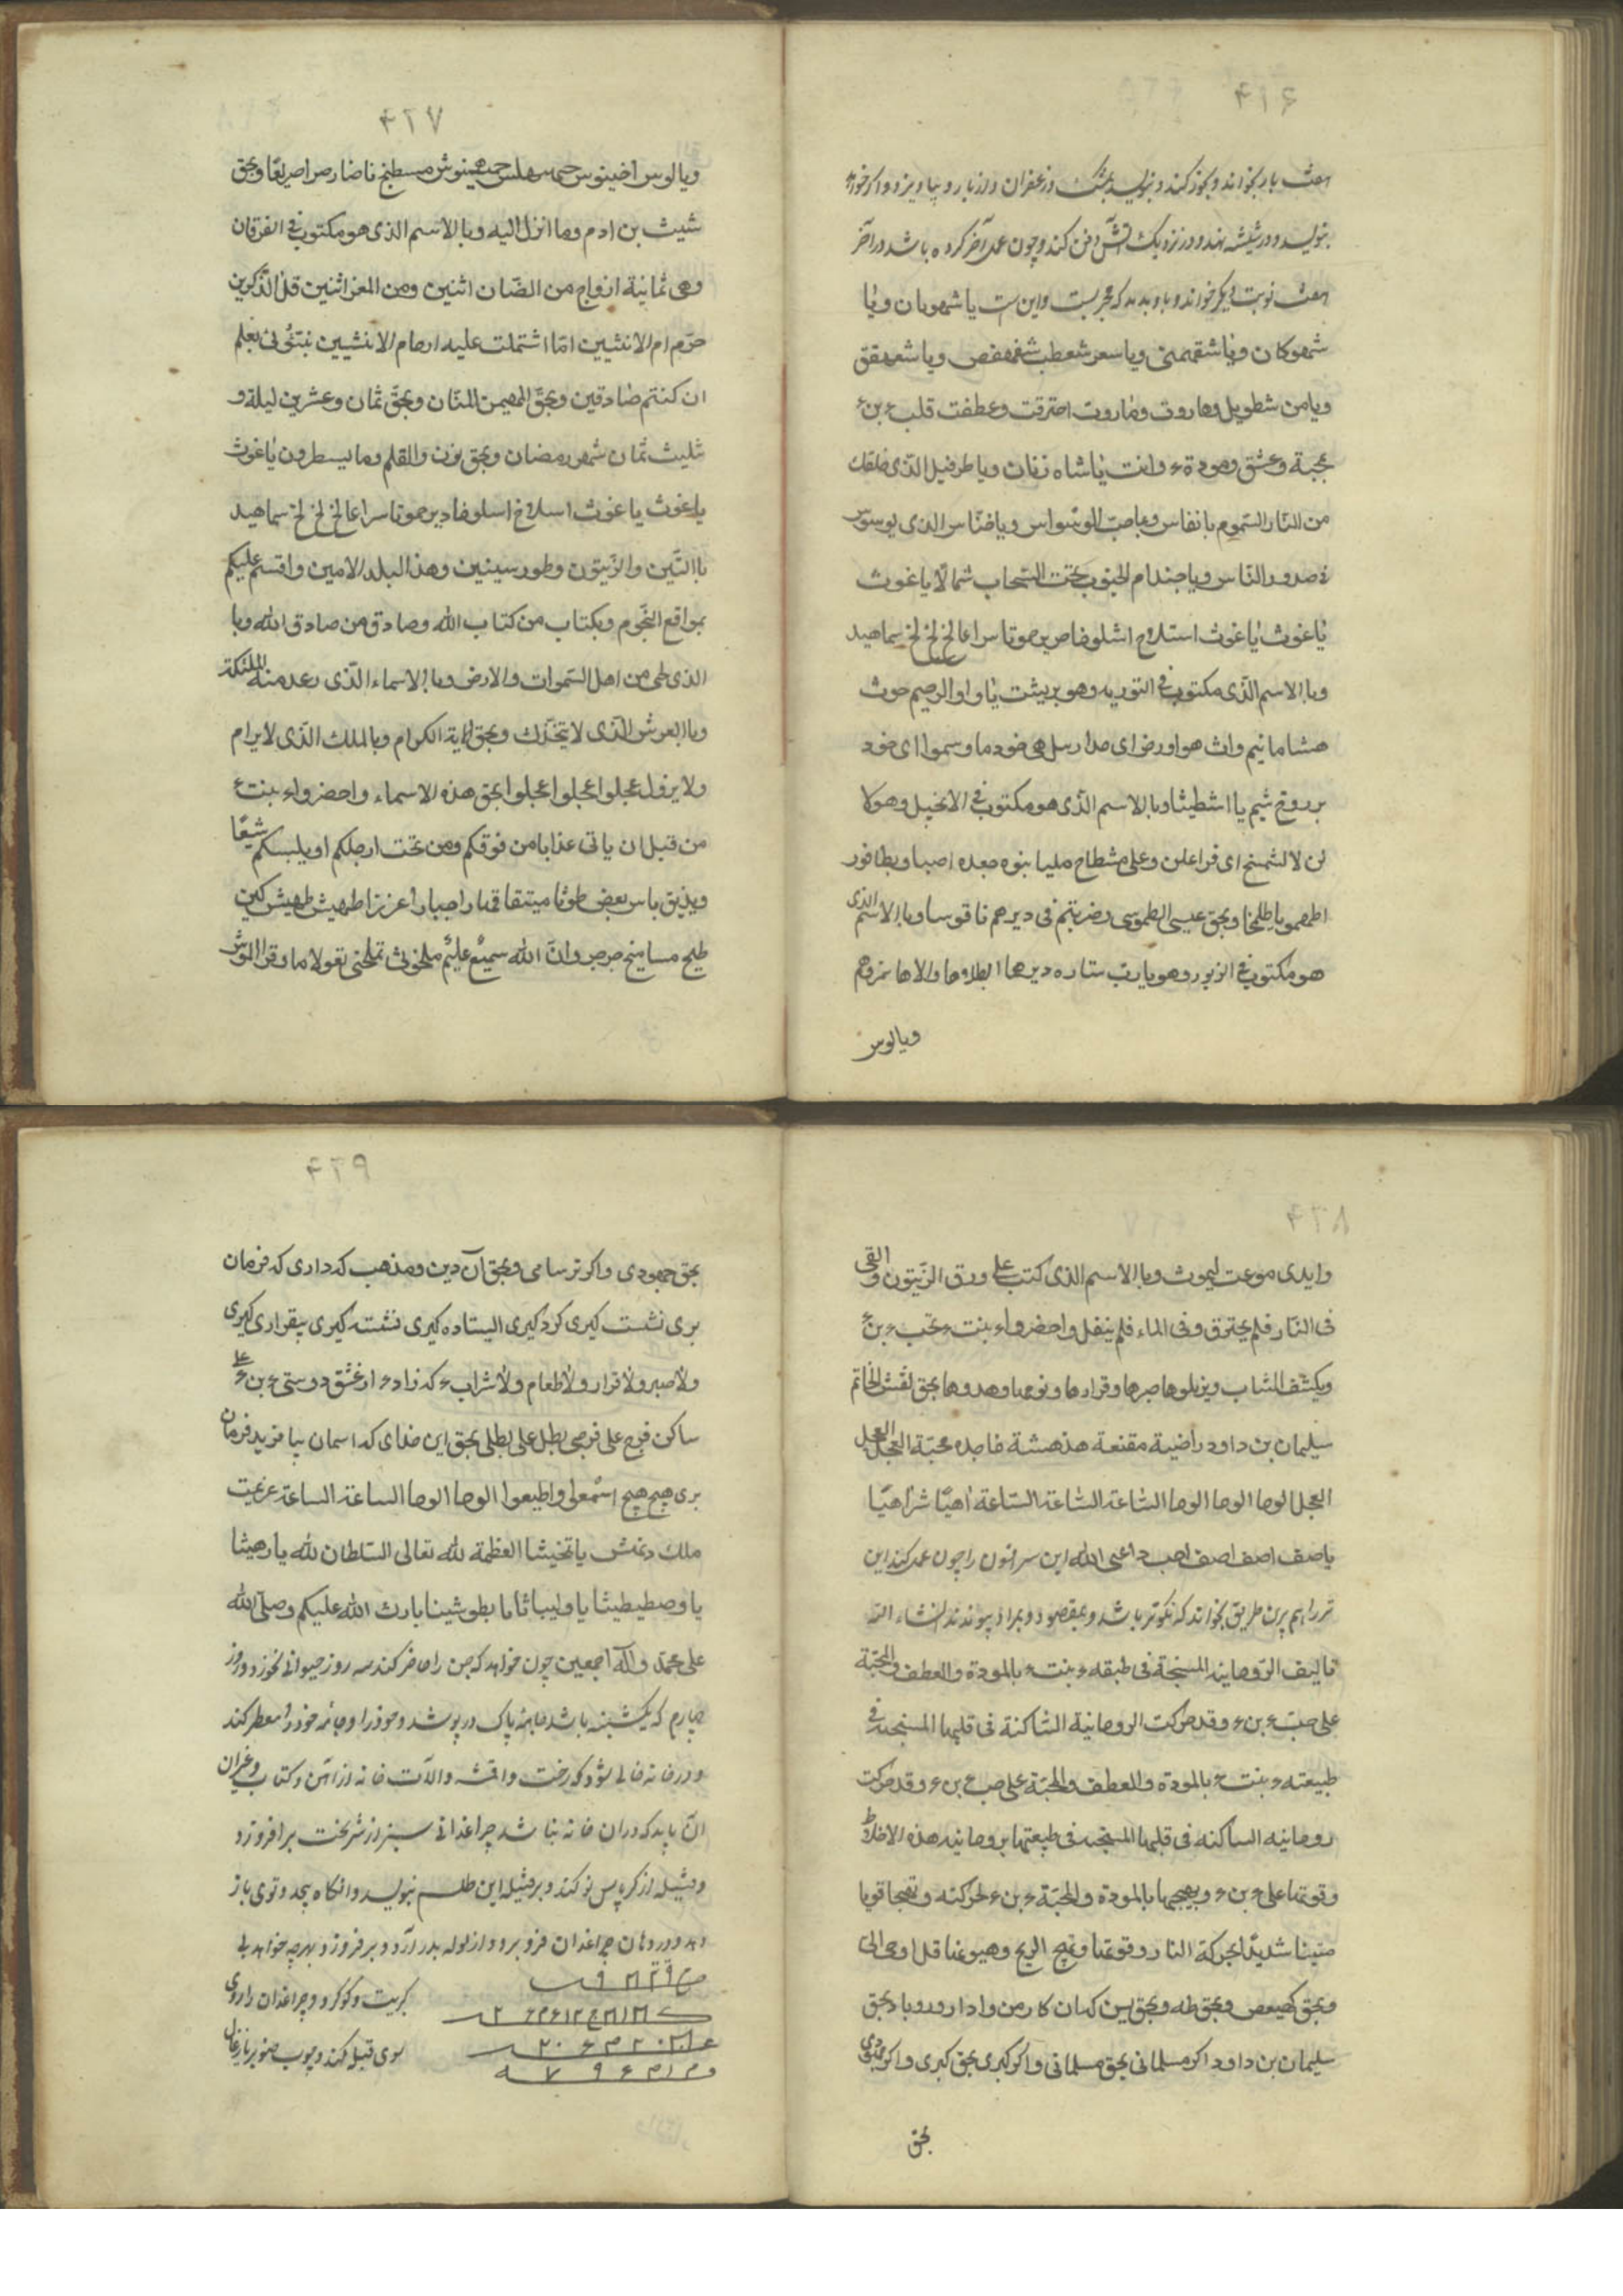 ۴۲۶
هفت بار بخواند و بخور کند و بنویسد بمشک و زعفران و از بار و بیاویزد و اگر خواهد
بنویسد و در شیشه نهد و در نزدیک آتش دفن کند و چون عمل آخر کرده باشد در آخر
هفت نوبت دیکر خواند و باو بدمد که مجربست و این است یا شمهویان ویا
شمهوکان ویا شقمهنی ویا سعر شعطب شغمهفص ویا شعرهقق
ویا من شطویل وهاروت وماروت احترقت وعطفت قلب ء بن ء
بمحبة وعشق ومودة ء وانت یا شاه زنان ویا طرفیل الذی خلقك
من النار السموم یا نفاس ویا صب الوسواس ویا خناس الذی یوسوس
فی صدور الناس ویا جندام الجنوب تحت السحاب شمالا یا غوث
یا غوث یا غوث استلاح اشلوفا صرین موتا سراعا لخ لخ لخ سماهید
وبا الاسم الذی مکتوب فی التوریه وهو بریثت یا واو الرحیم حوث
هشامانیم واث هواورخ ای مدارسل هی خود ما وسموا ای خود
بروق شیم یا اشطیثا وبا الاسم الذی هو مکتوب فی الانجیل وهو لا
لن لا لشمخ ای فراعلن وعلی مشطاح ملیا بنوه جعده اصبا وبطافور
اطمهمو یا طلخا وبحق عیسی الطموسی وضربتم فی دیرهم ناقوسا وبا الاسم الذی
هو مکتوب فی الزبور وهو یا رب ستاره دیرها ابطلاوها والاها نمزوهم
ویالوس
۴۲۷
ویالوس اخینوس حمس هلس حدهینوش مسطیخ ناضار صراصر یغا وبحق
شیث بن ادم وما انزل الیه وبا الاسم الذی هو مکتوب فی الفرقان
وهی ثمانیة ازواج من الضان اثنین ومن المعز اثنین قل الذکرین
حرم ام الانثیین امّا اشتملت علیه ارحام الانثیین نبئونی بعلم
ان کنتم صادقین وبحق المهیمن المنان وبحق ثمان وعشرین لیلة و
ثلیث ثمان شهر رمضان وبحق نون والقلم وما یسطرون یا غوث
یا غوث یا غوث اسلاخ اسلوفا دیرین موتا سراعا لخ لخ لخ سماهید
با التین والزیتون وطور سینین وهذا البلد الامین واقسم علیکم
بمواقع النجوم وبکتاب من کتاب الله وصادق من صادق الله وبا
الذی طی من اهل السموات والارض وبا الاسماء الذی رعد منه الملئکة
وبا العرش الذی لا یتحرك وبحق الایة الکرام وبالملك الذی لا یرام
ولا یزول عجلوا عجلوا عجلوا بحق هذه الاسماء واحضروا ء بنت ء
من قبل ان یاتی عذابا من فوقکم ومن تحت ارجلکم او یلبسکم شیعًا
ویذیق باس بعض طوثا میثقا قهارا جبارا عززا طهیش طهیش لکن
طلیح مسامیخ جرجر وان الله سمیعٌ علیمٌ ملخوث تملخی تقولا ما وقرا الموش
۴۲۸
وایدی موعت لیموث وبا الاسم الذی کتب علی ورق الزیتون والقی
فی النار فلم یحترق وفی الماء فلم ینفل واحضروا ء بنت ء بحب ء بن ء
ویکشف الشاب ویزیلوها صبرها وقرارها ونومها وهدوها بحق نقش الخاتم
سلیمان بن داود راضیة مقنعة هذ هشة فاجده محبة العجل العجل
العجل الوحا الوحا الوحا الساعة الساعة الساعة اهیّا شراهیّا
یا صف اصف اصف اجب داعی الله این سرافون را چون عمل کند این
نیز را هم برین طریق بخواند که نکوتر باشد و بمقصود و بمراد پیوندد انشاء الله
تالیف الروحانیة المسنجة فی طبقه ء بنت ء بالمودة والعطف والمحبة
علی حب ء بن ء وقد حرکت الروحانیة الساکنة فی قلبها المسنجده فی
طبیعته ء بنت ء بالمودة والعطف والمحبة علی حب ء بن ء وقد حرکت
روحانیه الساکنه فی قلبها المسنجده فی طبیعتها بروحانیه هذه الاخلاط
وقوتها علی ء بن ء ویهیجها بالمودة والمحبّة ء بن ء لحرکته وتهیجا قویا
متینا شدیدًا بحرکة النار وقوتها وتهیج الریح وهبوبها قل اوحی الی
وبحق کهیعص وبحق طه وبحق یس کهان کار من وادار ورو باد بحق
سلیمان بن داود اکر مسلمانی بحق مسلمانی واکر کبری بحق کبری واکر جهودی
بحق
۴۲۹
بحق جهودی واکر ترسامی وبحق آن دین ومذهب که داری که فرمان
بری نشست کیری کرد کیری ایستاده کیری نشسته کیری بیقراری کیری
ولا صبر ولا قرار ولا طعام ولا شراب ء که زاد ء از عشق دوستی ء بن ء علی
ساکن فرح علی فرحی بطل علی بطلی بحق این خدای که اسمان بیافرید فرمان
بری هیج هیج اسمعلی واطیعوا الوحا الوحا الساعة الساعة عزیمت
ملك دنمش یا تخیشا العظمة لله تعالی السلطان لله یا رهیثا
یا وصطیطیثا یا ولیباثا ما بطوشینا بارك الله علیکم وصلی الله
علی محمد وآله اجمعین چون خواهد که جن را حاضر کند سه روز حیوانی نخورد و روز
چارم که یکشنبه باشد جامه پاک در پوشد و خود را و جامه خود را معطر کند
و در خانه خالی شود که رخت واقمشه والات خانه از اتش و کتاب وغیران
ان باید که دران خانه نباشد چراغدانی سبز از شریخت برافروزد
و فتیله از کرپاس نو کند و بر فتیله این طلسم بنویسد وانکاه پیچد و توی باز
دهد و در دهان چراغدان فرو برد و از لوله بدر آرد و بر فروزد و بهرچه خواهد بی
کبریت وکوکرد و چراغدان را روی
سوی قبله کند و چوب صنوبر